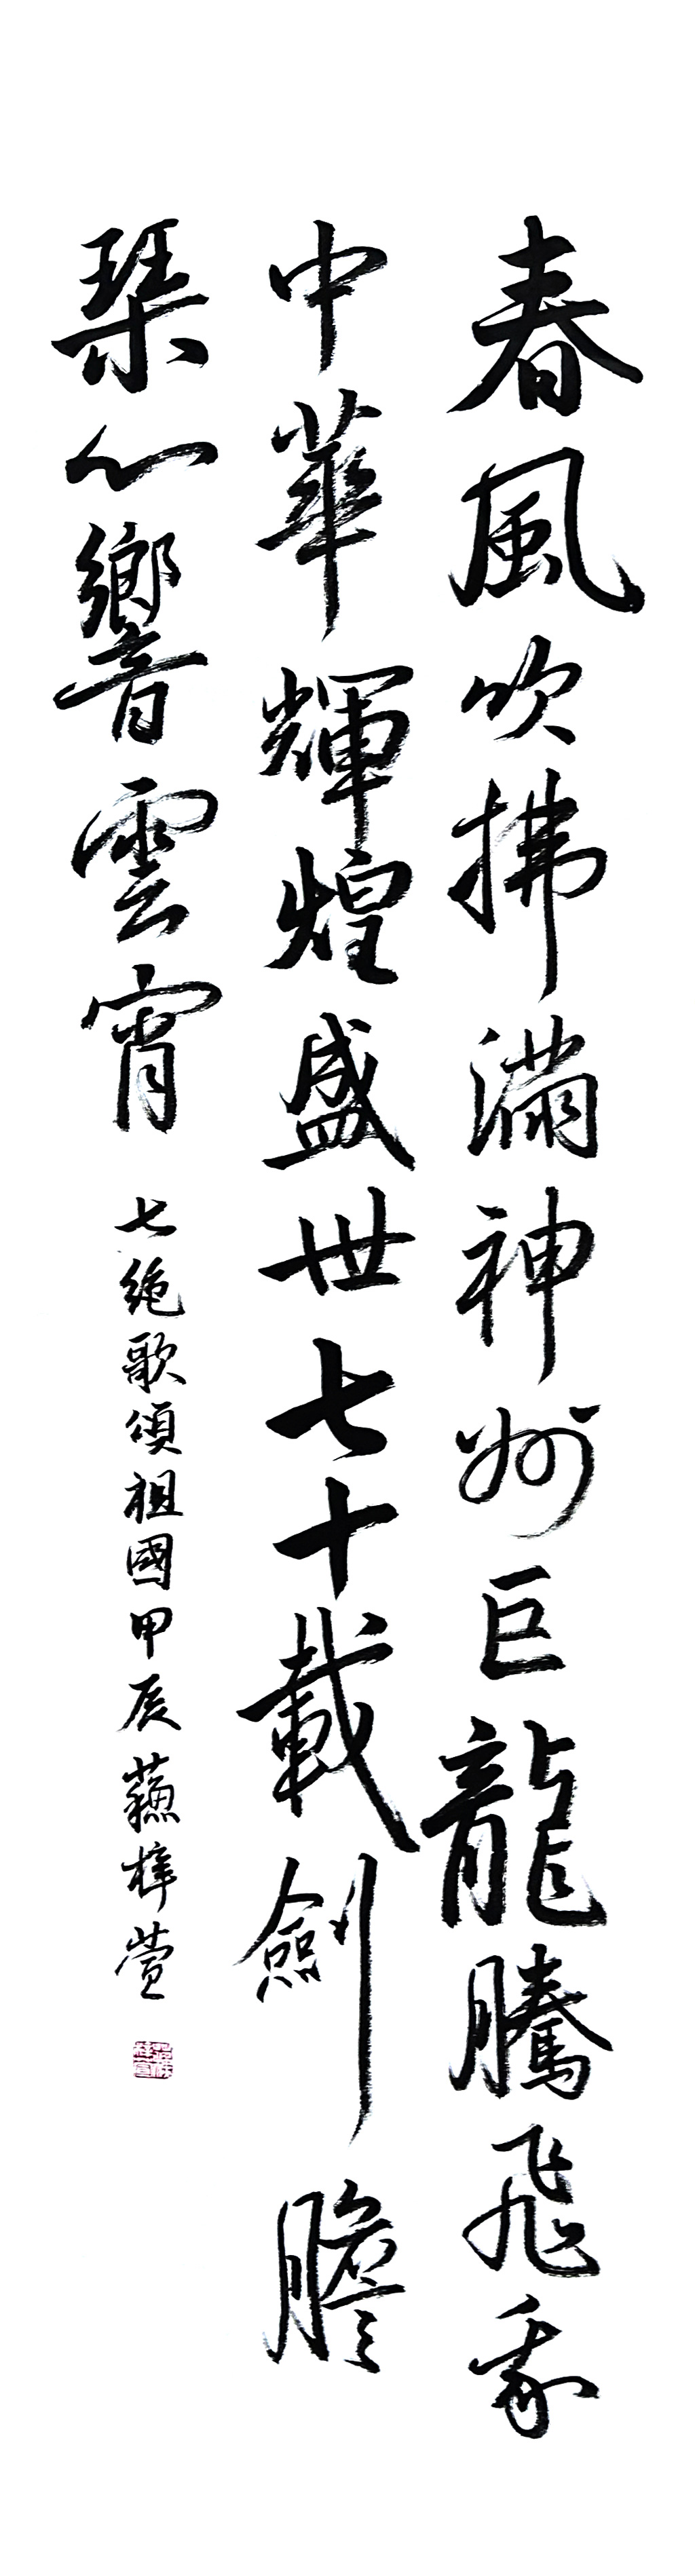 春風吹拂滿神州巨龍騰飛我
中華輝煌盛世七十載劍膽
琴心響雲霄
七絶歌頌祖國甲辰蘇梓萱